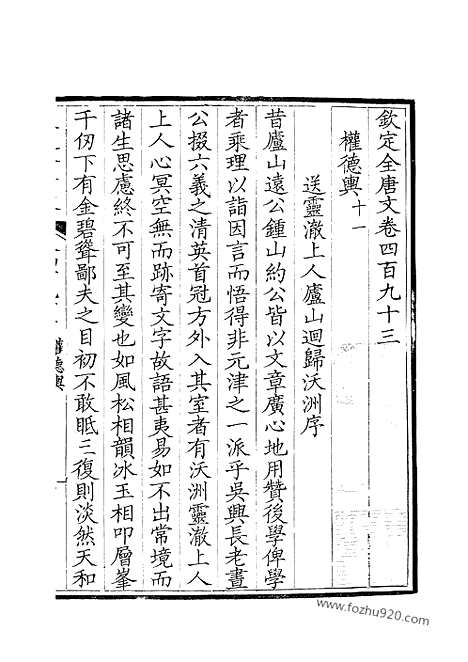 欽定全唐文卷四百九十三
權德輿十一
送靈澈上人廬山迴歸沃洲序
昔廬山遠公鍾山約公皆以文章廣心地用贊後學俾學
者乘理以詣因言而悟得非元津之一派乎吳興長老晝
公掇六義之清英首冠方外入其室者有沃洲靈澈上人
上人心冥空無而跡寄文字故語甚夷易如不出常境而
諸生思慮終不可至其變也如風松相韻冰玉相叩層峯
千仞下有金碧聳鄙夫之目初不敢眡三復則淡然天和
權德輿
www.fozhu920.com